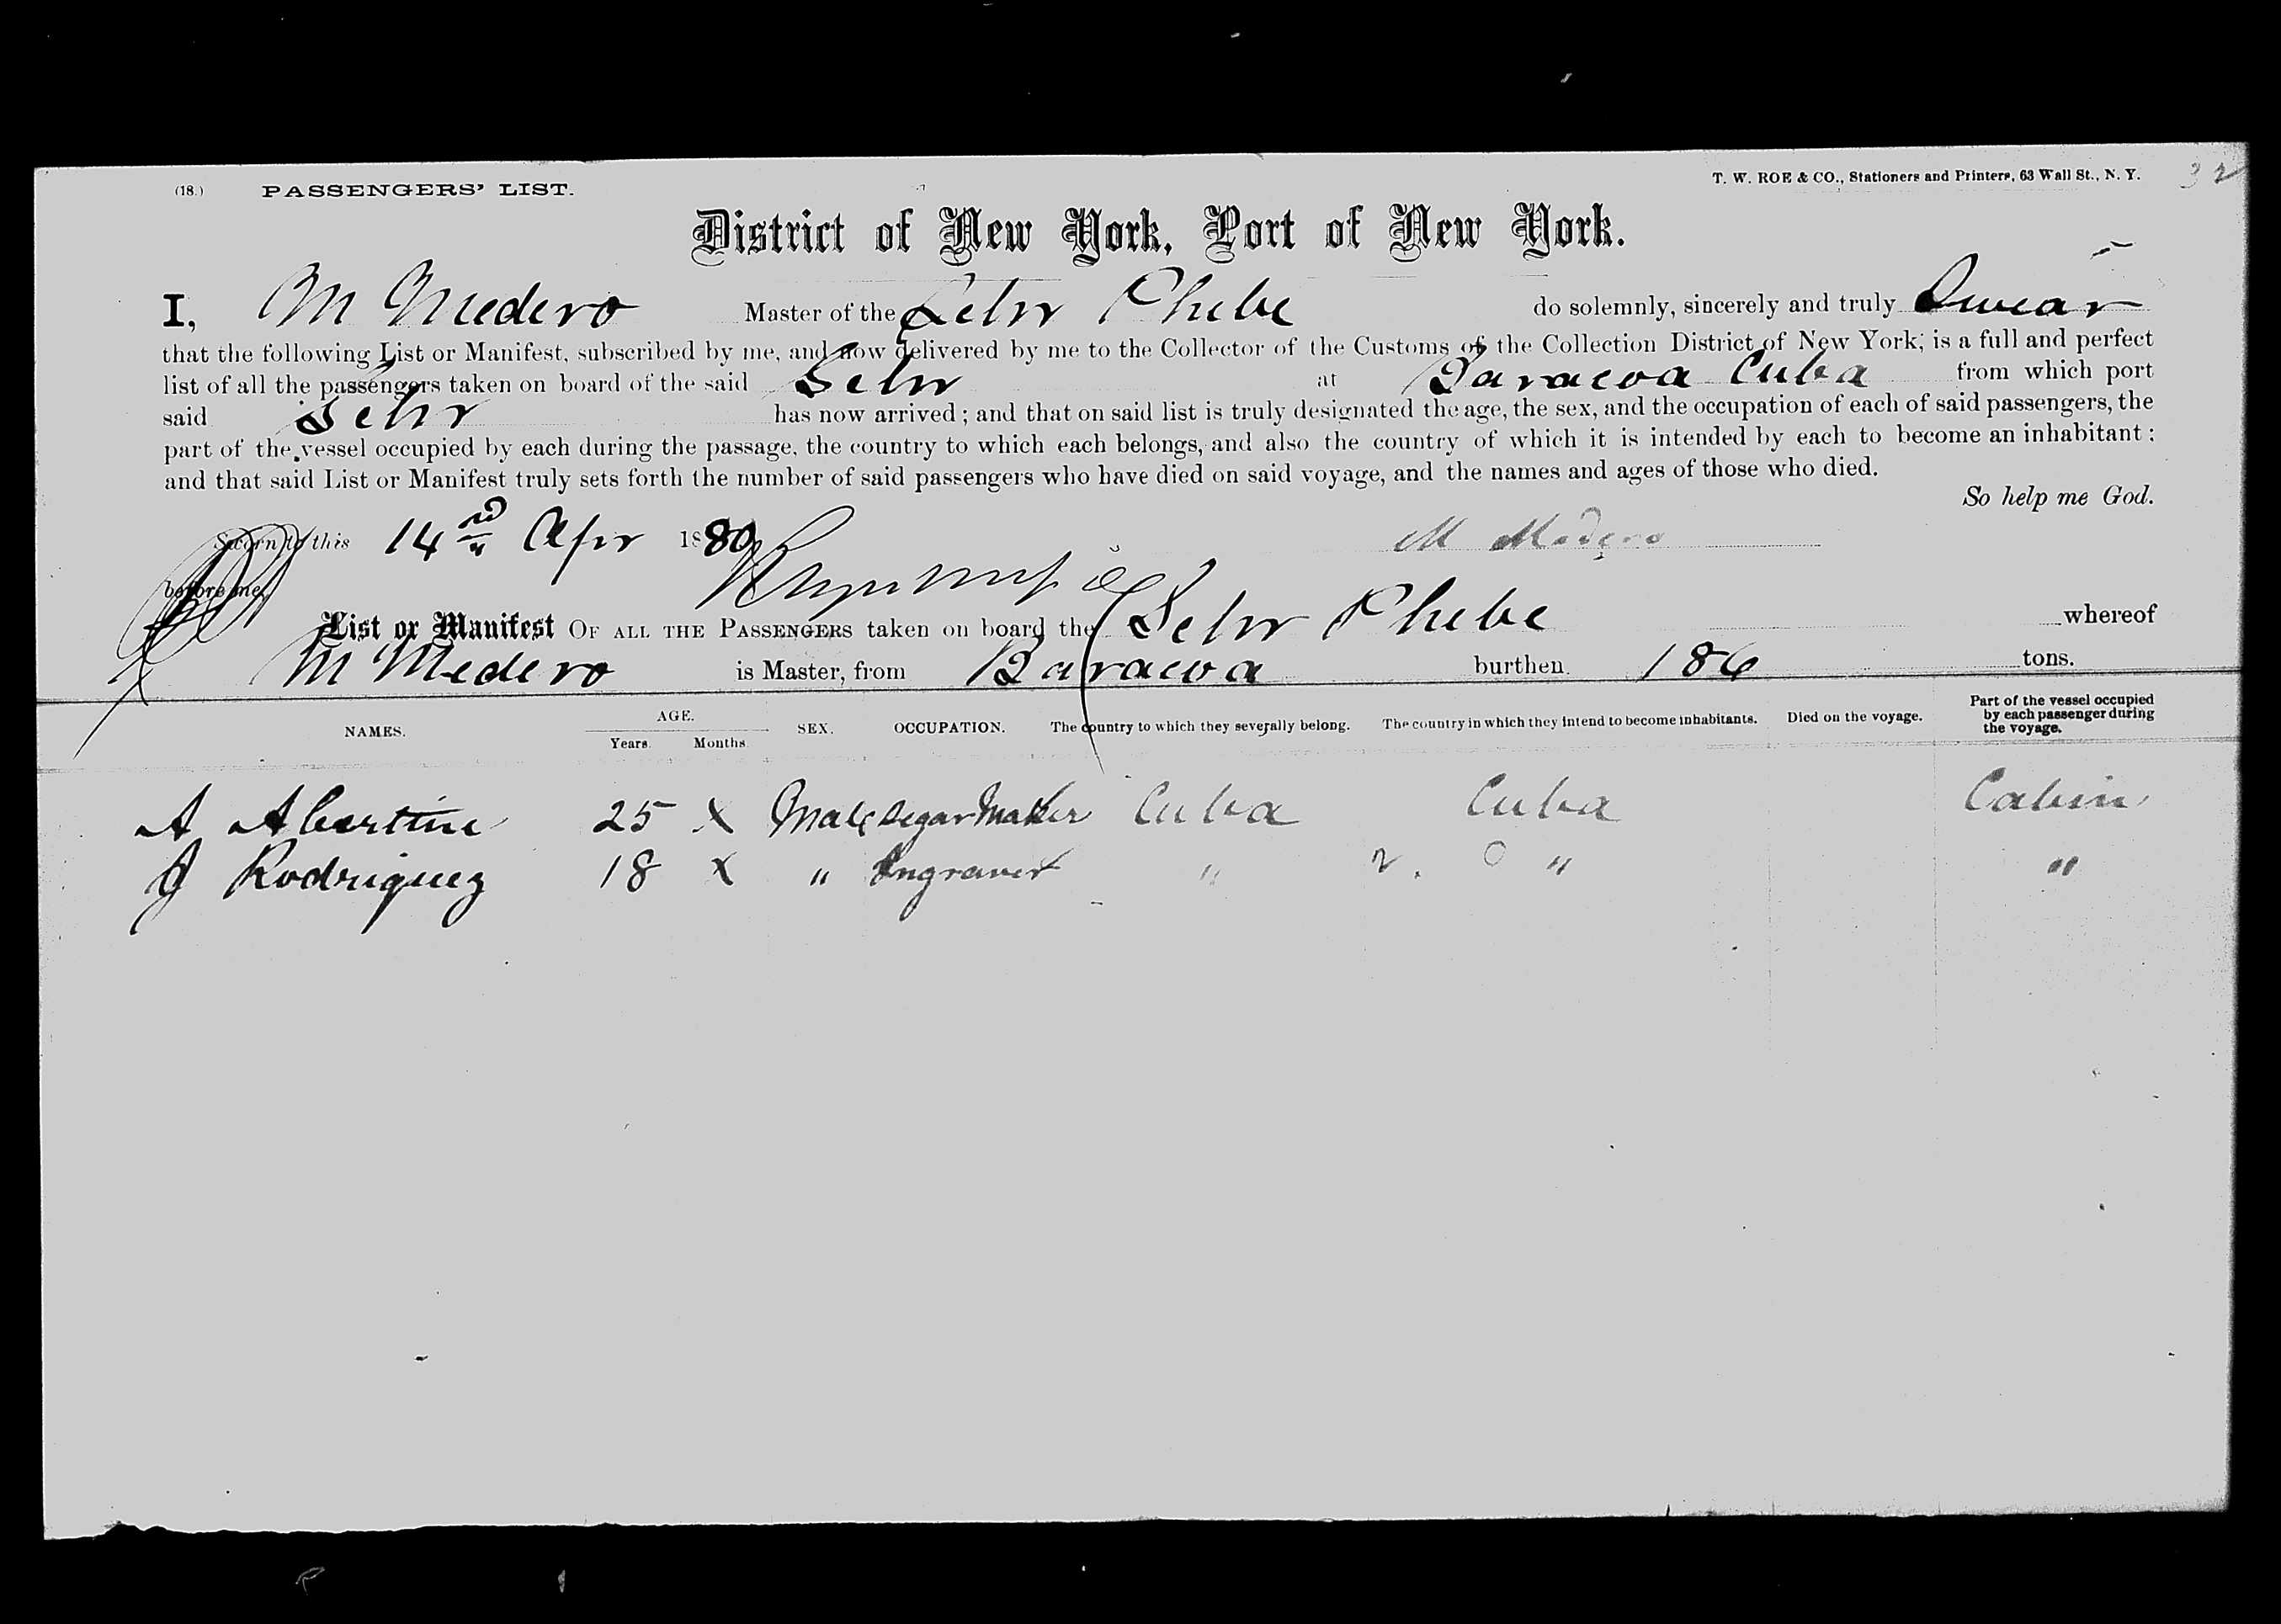 (18.) PASSENGERS' LIST. T. W. ROE & CO., Stationers and Printers, 63 Wall St., N. Y. 32
District of New York, Port of New York.
I, M Medero Master of the Schr Phebe do solemnly, sincerely and truly Swear
that the following List or Manifest, subscribed by me, and now delivered by me to the Collector of the Customs of the Collection District of New York, is a full and perfect
list of all the passengers taken on board of the said Schr at Baracoa Cuba from which port
said Schr has now arrived; and that on said list is truly designated the age, the sex, and the occupation of each of said passengers, the
part of the vessel occupied by each during the passage, the country to which each belongs, and also the country of which it is intended by each to become an inhabitant;
and that said List or Manifest truly sets forth the number of said passengers who have died on said voyage, and the names and ages of those who died.
So help me God.
Sworn to this 14 Apr 1880 M Madero
before me,
List or Manifest OF ALL THE PASSENGERS taken on board the Schr Phebe whereof
M Medero is Master, from Baracoa burthen 186 tons.
NAMES. AGE. Years. Months. SEX. OCCUPATION. The country to which they severally belong. The country in which they intend to become inhabitants. Died on the voyage. Part of the vessel occupied by each passenger during the voyage.
A 25 X Male Segar Maker Cuba Cuba Cabin
J Rodriguez 18 X " Engraver " 2. 0 " "